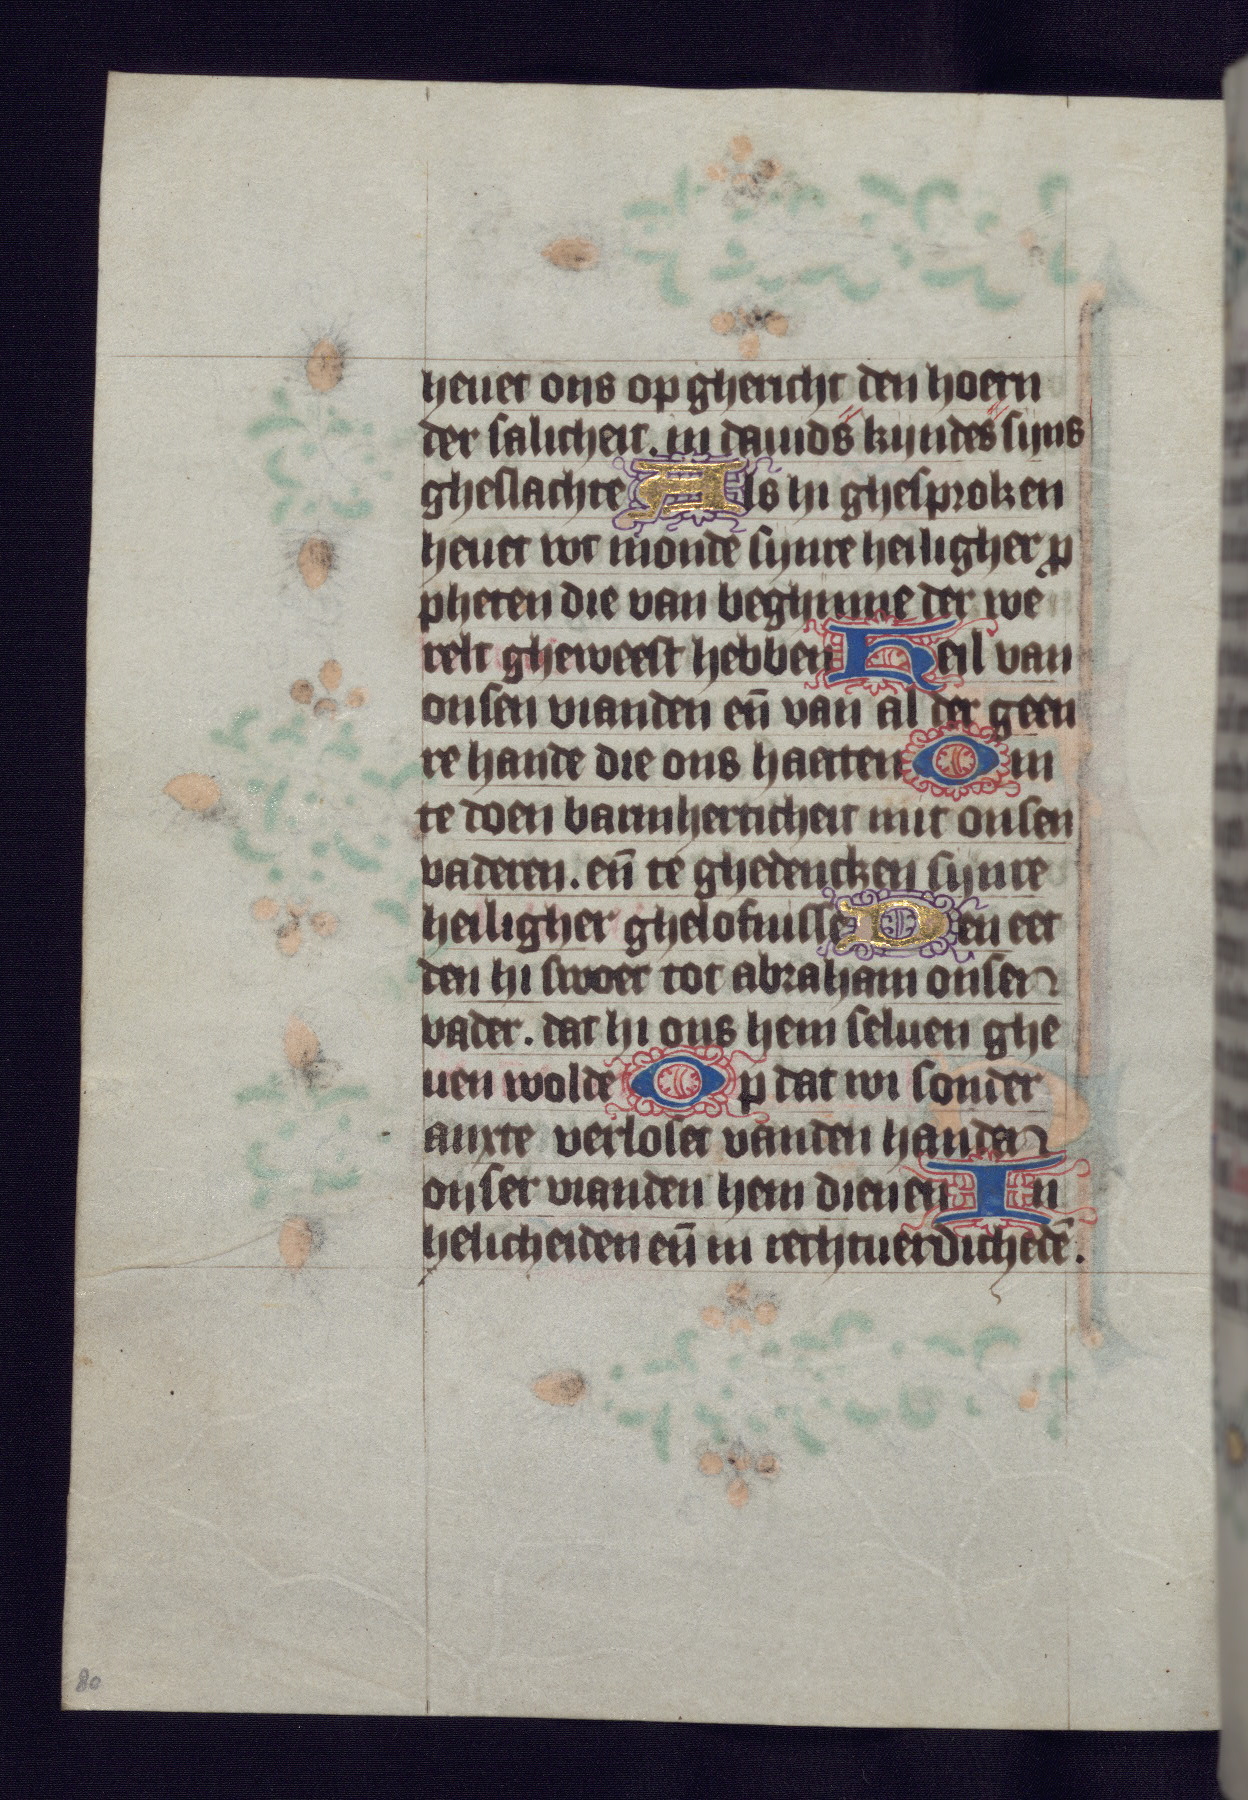 heuet ons op ghericht den hoern
der salicheit. in dauids kijndes sijns
gheslachte Als hi ghesproken
heuet wt monde sijnre heiligher p
pheten die van beghinne der we
relt gheweest hebben Heil van
onsen vianden eñ van al der geen
re hande die ons haetten Om
te doen barmherticheit mit onsen
vaderen. eñ te ghedencken sijnre
heiligher ghelofnisse Den eet
den hi swoer tot abraham onsen
vader. dat hi ons hem seluen ghe
uen wolde Op dat wi sonder
anxte verloset vanden handen
onser vianden hem dienen In
helicheiden eñ in rechtuerdichedē.
80